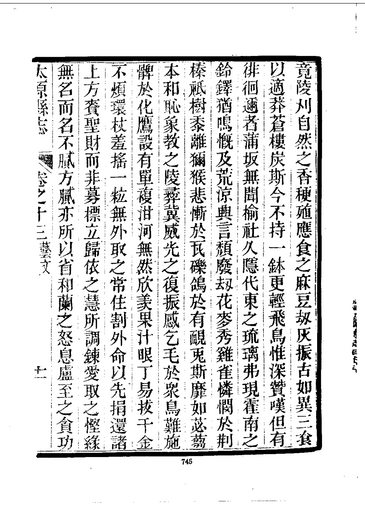 竟陵刈自然之香稉殖應食之麻豆刼灰振古如異三食
以適莽蒼樓炭斯今不持一鉢更輕飛鳥惟深贊嘆但有
徘徊邇者蒲坂無聞榆社久隱代東之琉璃弗現霍南之
鈴鐸猶鳴慨及荒凉輿言頹廢刼花麥秀雞雀憐憫於荆
榛祇樹黍離獼猴悲慚於瓦礫鴿於有覗兎斯靡如苾蒭
本和恥象教之陵彛冀威先之復振感乞毛於衆鳥難施
髀於化鷹設有單複泔河無然欣美果汁哏丁易拔千金
不煩環杖羞搖一粒無外取之常住割外命以先捐還諸
上方賚聖財而非募標立歸依之慧所調錬愛取之慳綠
無名而名不膩方膩亦所以首和蘭之怒息盧至之貪功
太原縣志 卷之十三 藝文 十一
745